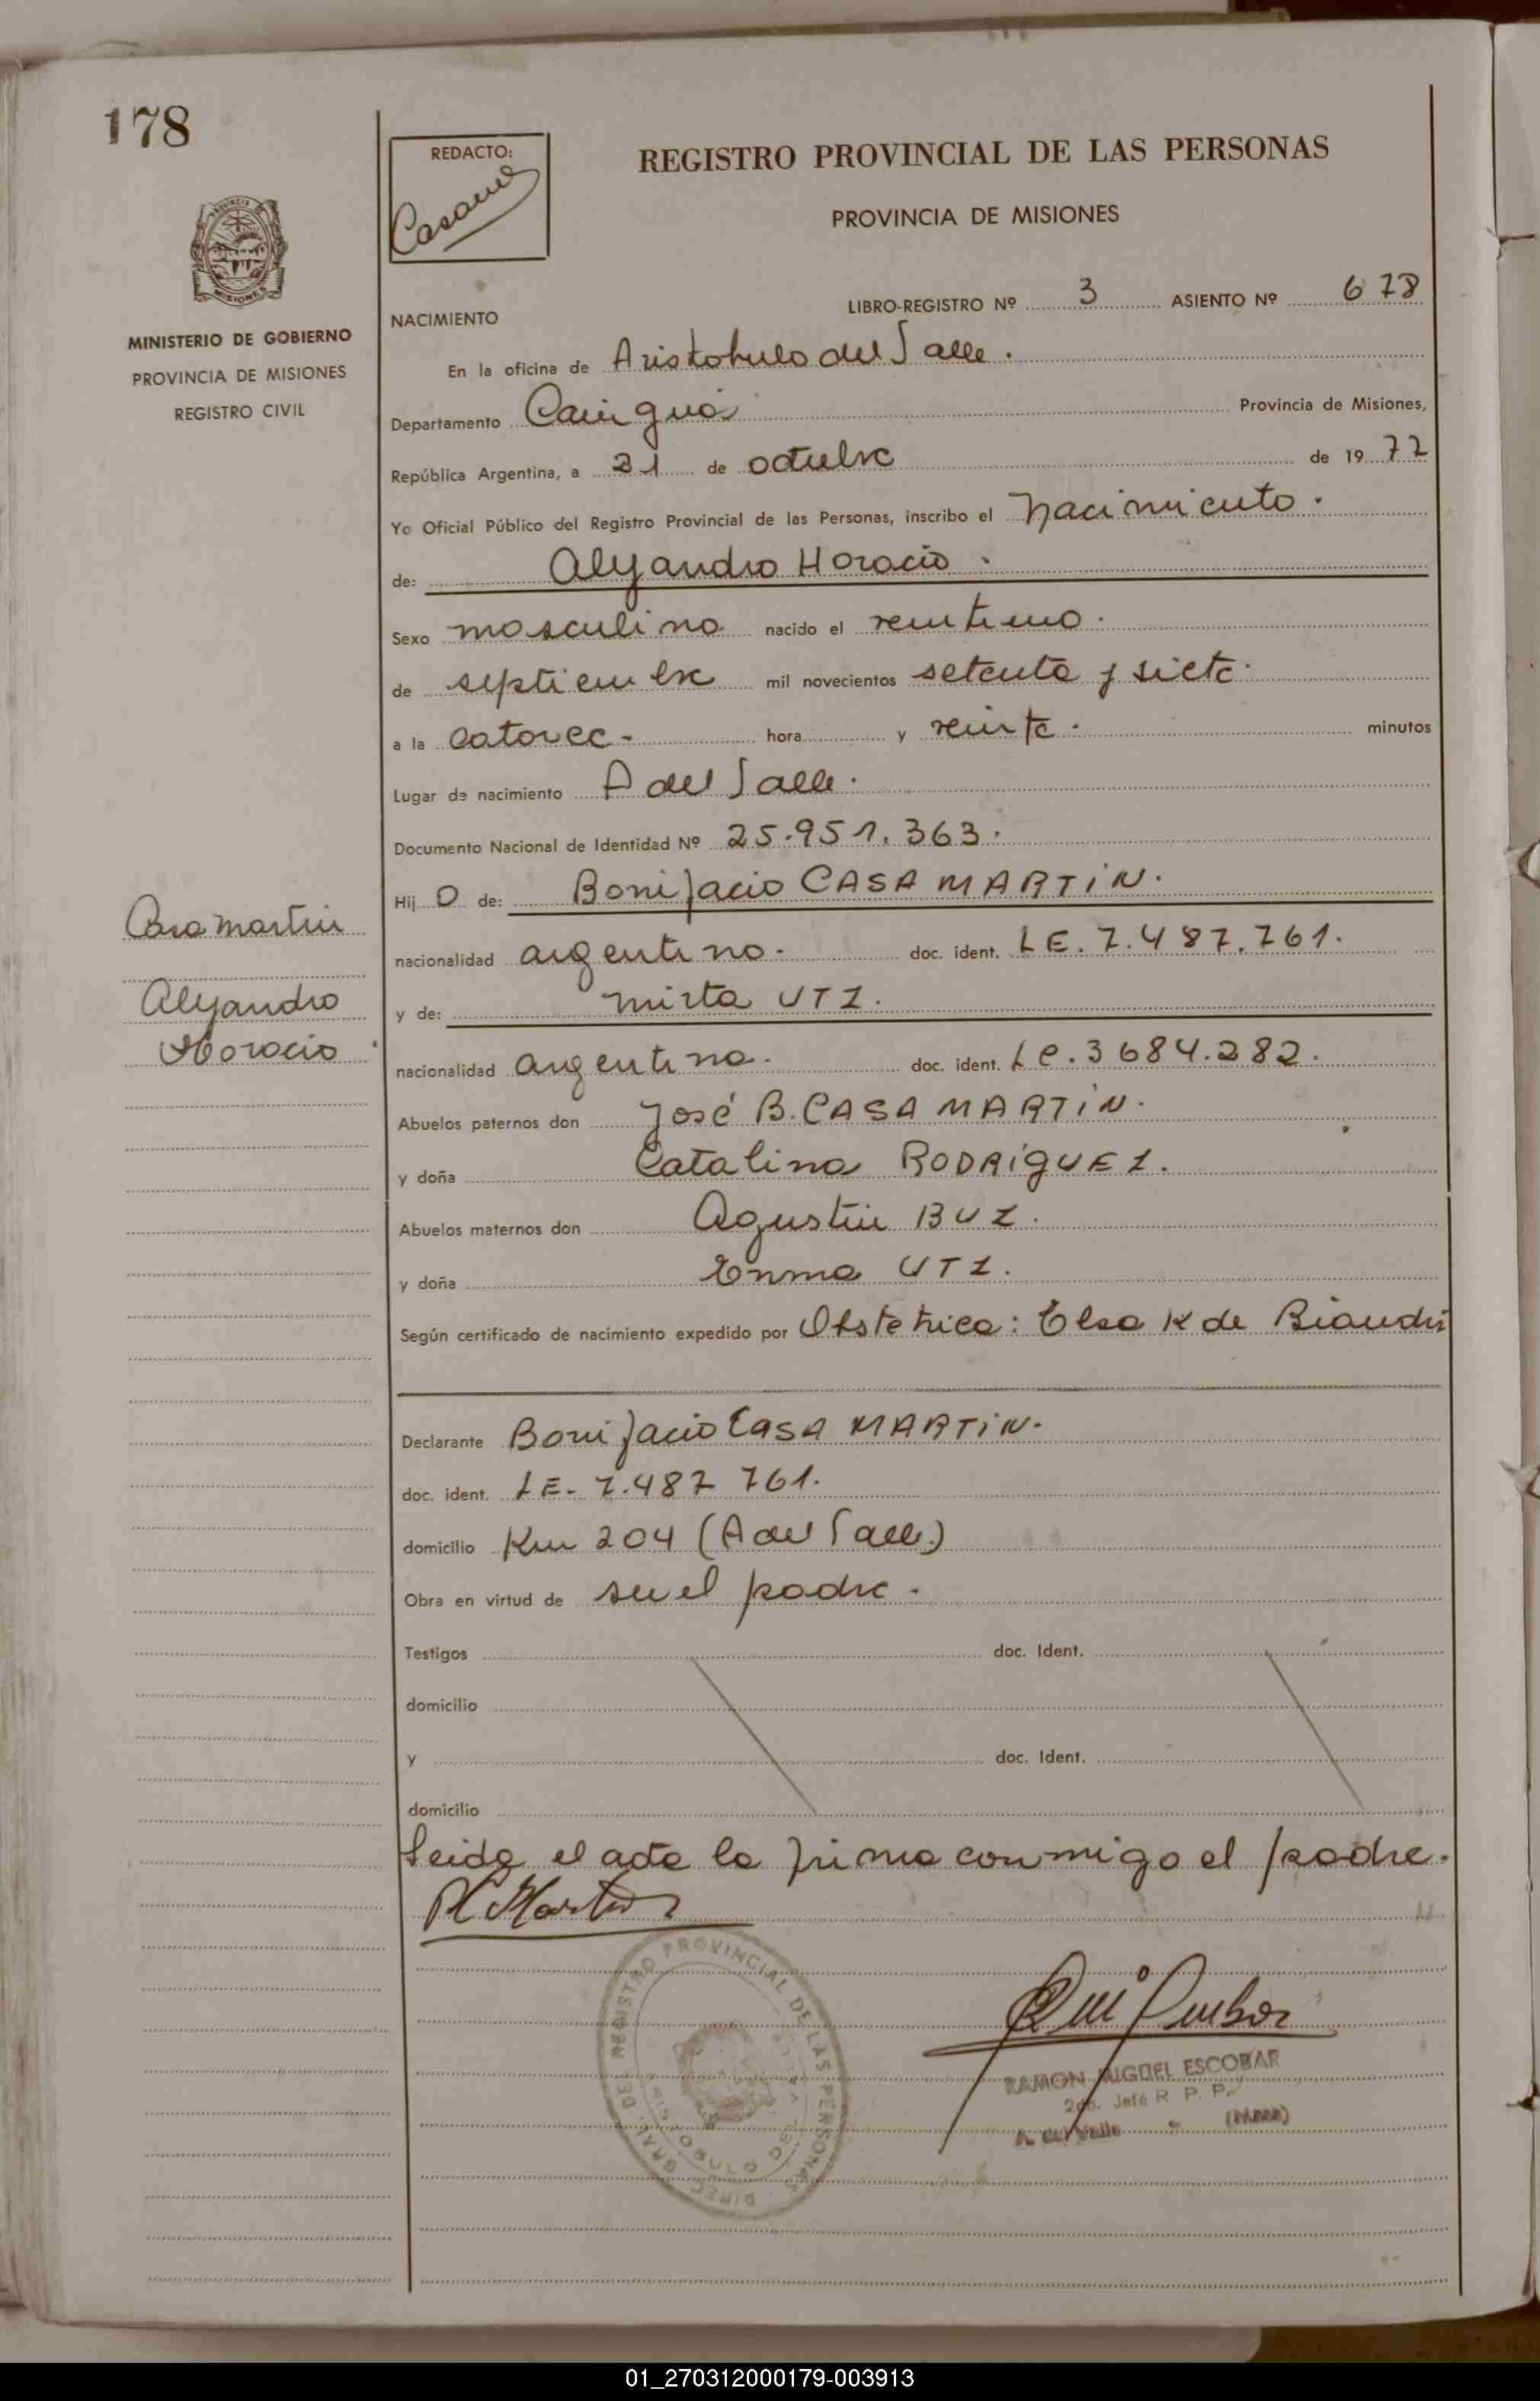 178
REDACTO:
REGISTRO PROVINCIAL DE LAS PERSONAS
PROVINCIA DE MISIONES
MISIONES
MINISTERIO DE GOBIERNO
PROVINCIA DE MISIONES
REGISTRO CIVIL
LIBRO-REGISTRO Nº 3 ASIENTO Nº 678
NACIMIENTO
En la oficina de Aristobulo del Valle.
Departamento Cainguas Provincia de Misiones,
República Argentina, a 21 de octubre de 19 77
Yo Oficial Público del Registro Provincial de las Personas, inscribo el nacimiento.
de: Alejandro Horacio.
Sexo masculino nacido el veintiuno.
de septiembre mil novecientos setenta y siete.
a la catorce- hora y veinte. minutos
Lugar de nacimiento A del Valle.
Documento Nacional de Identidad Nº 25.951.363.
Hij o de: Bonifacio CASA MARTIN.
nacionalidad argentino. doc. ident. LE. 7.487.761.
y de: Mirta UTZ.
nacionalidad argentina. doc. ident. LC. 3684.282.
Abuelos paternos don José B. CASA MARTIN.
y doña Catalina RODRIGUEZ.
Abuelos maternos don Agustin BUZ.
y doña Enma UTZ.
Según certificado de nacimiento expedido por Obstetrica: Elsa K de Biaudri
Casa martin
Alejandro
Horacio
Declarante Bonifacio CASA MARTIN.
doc. ident. LE- 7.487 761.
domicilio Km 204 (A del Valle.)
Obra en virtud de ser el padre.
Testigos doc. Ident.
domicilio
y doc. Ident.
domicilio
Leida el acta la firma conmigo el padre.
DIREC. GRAL. DE REGISTRO PROVINCIAL DE LAS PERSONAS
RAMON MIGUEL ESCOBAR
2do. Jefe R. P. P.
A. del Valle - (Mnes)
01_270312000179-003913